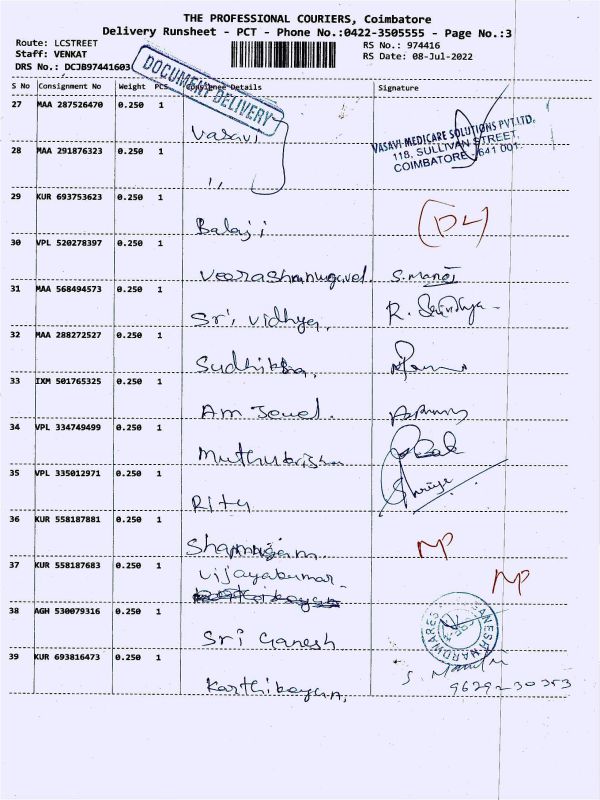 THE PROFESSIONAL COURIERS, Coimbatore
Delivery Runsheet - PCT - Phone No.:0422-3505555 - Page No.:3
Route: LCSTREET RS No.: 974416
Staff: VENKAT RS Date: 08-Jul-2022
DRS No.: DCJB97441603
DOCUMENT DELIVERY
S No Consignment No Weight PCS Consignee Details Signature
27 MAA 287526470 0.250 1
Vasavi
VASAVI MEDICARE SOLUTIONS PVT.LTD.
118, SULLIVAN STREET,
COIMBATORE - 641 001.
28 MAA 291876323 0.250 1
,,
29 KUR 693753623 0.250 1
Balaji (DL)
30 VPL 520278397 0.250 1
Veerashanmugavel. S. Manoj
31 MAA 568494573 0.250 1
Sri Vidhya, R.
32 MAA 288272527 0.250 1
Sudhiksha,
33 IXM 501765325 0.250 1
Am Jewel.
34 VPL 334749499 0.250 1
Muthukrishn
35 VPL 335012971 0.250 1
Ritu
36 KUR 558187881 0.250 1
Shanmugam. NP
37 KUR 558187683 0.250 1
Vijayakumar NP
38 AGH 530079316 0.250 1
Sri Ganesh
GANESH HARDWARES
39 KUR 693816473 0.250 1
Karthikeyan, 9629230353